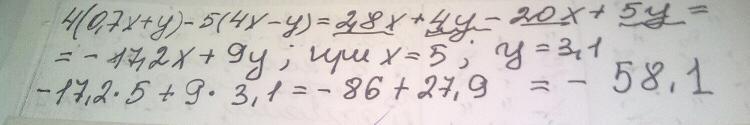 4(0,7x+y)-5(4x-y)=2,8x+4y-20x+5y=
=-17,2x+9y; при x=5; y=3,1
-17,2·5+9·3,1=-86+27,9 =-58,1